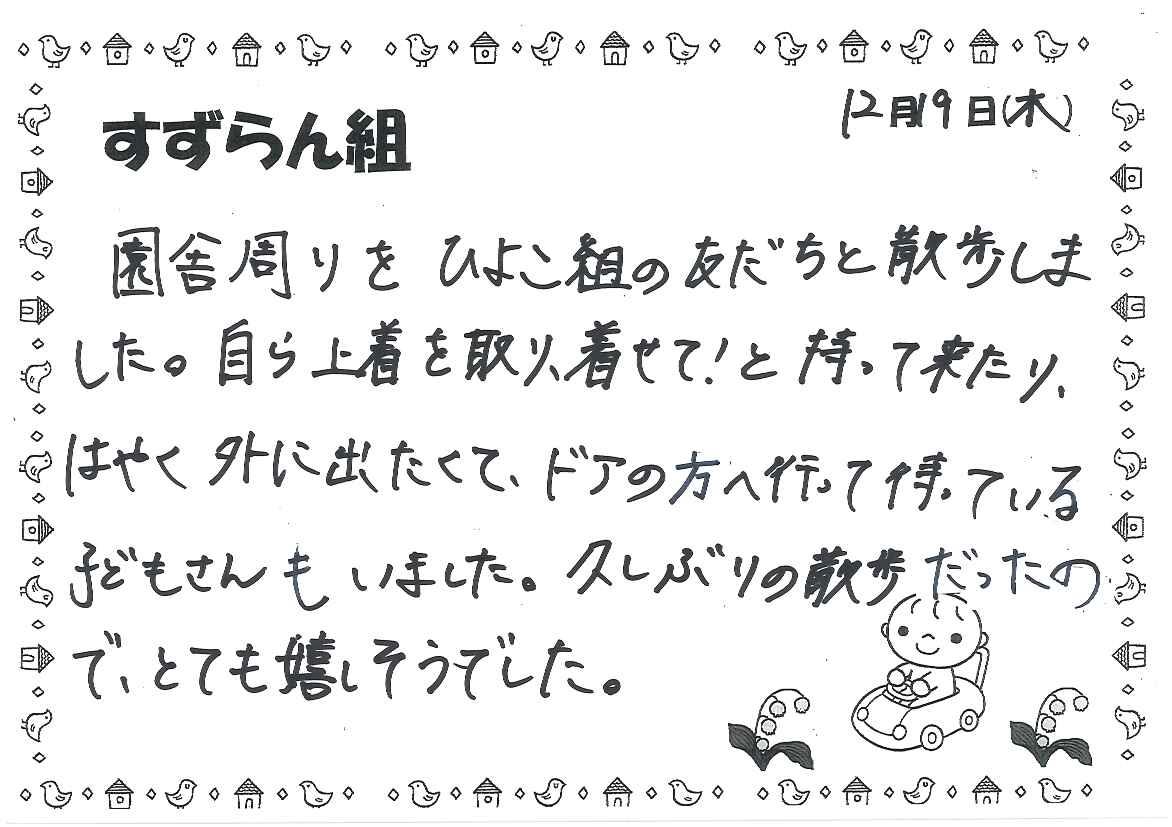 すずらん組
12月19日(木)
園舎周りを ひよこ組の友だちと散歩しま
した。自ら上着を取り、着せて!と持って来たり、
はやく外に出たくて、ドアの方へ行って待っている
子どもさんも いました。久しぶりの散歩だったの
で、とても嬉しそうでした。